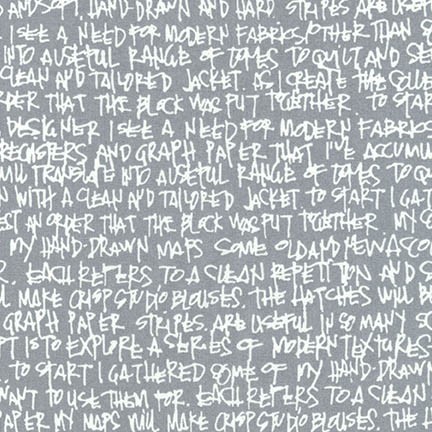 AND SOFT, HAND-DRAWN AND HARD. STRIPES ARE USEFUL
I SEE A NEED FOR MODERN FABRICS, OTHER THAN S
INTO A USEFUL RANGE OF TONES TO QUILT AND SE
CLEAN AND TAILORED JACKET. AS I CREATE THE COLLE
ORDER THAT THE BLOCK WAS PUT TOGETHER TO STAR
DESIGNER I SEE A NEED FOR MODERN FABRICS
REGISTERS, AND GRAPH PAPER THAT I'VE ACCUMU
WILL TRANSLATE INTO A USEFUL RANGE OF TONES TO QU
N WITH A CLEAN AND TAILORED JACKET TO START I GAT
EST AN ORDER THAT THE BLOCK WAS PUT TOGETHER MY G
MY HAND-DRAWN MAPS SOME OLD AND NEW ACCO
R. EACH REFERS TO A CLEAN REPETITION AND S
L MAKE CRISP STUDIO BLOUSES. THE HATCHES WILL BE
GRAPH PAPER STRIPES. ARE USEFUL IN SO MANY
PT IS TO EXPLORE A SERIES OF MODERN TEXTURES
TO START I GATHERED SOME OF MY HAND-DRAWN
WANT TO USE THEM FOR. EACH REFERS TO A CLEAN
PAPER MY MAPS WILL MAKE CRISP STUDIO BLOUSES. THE H